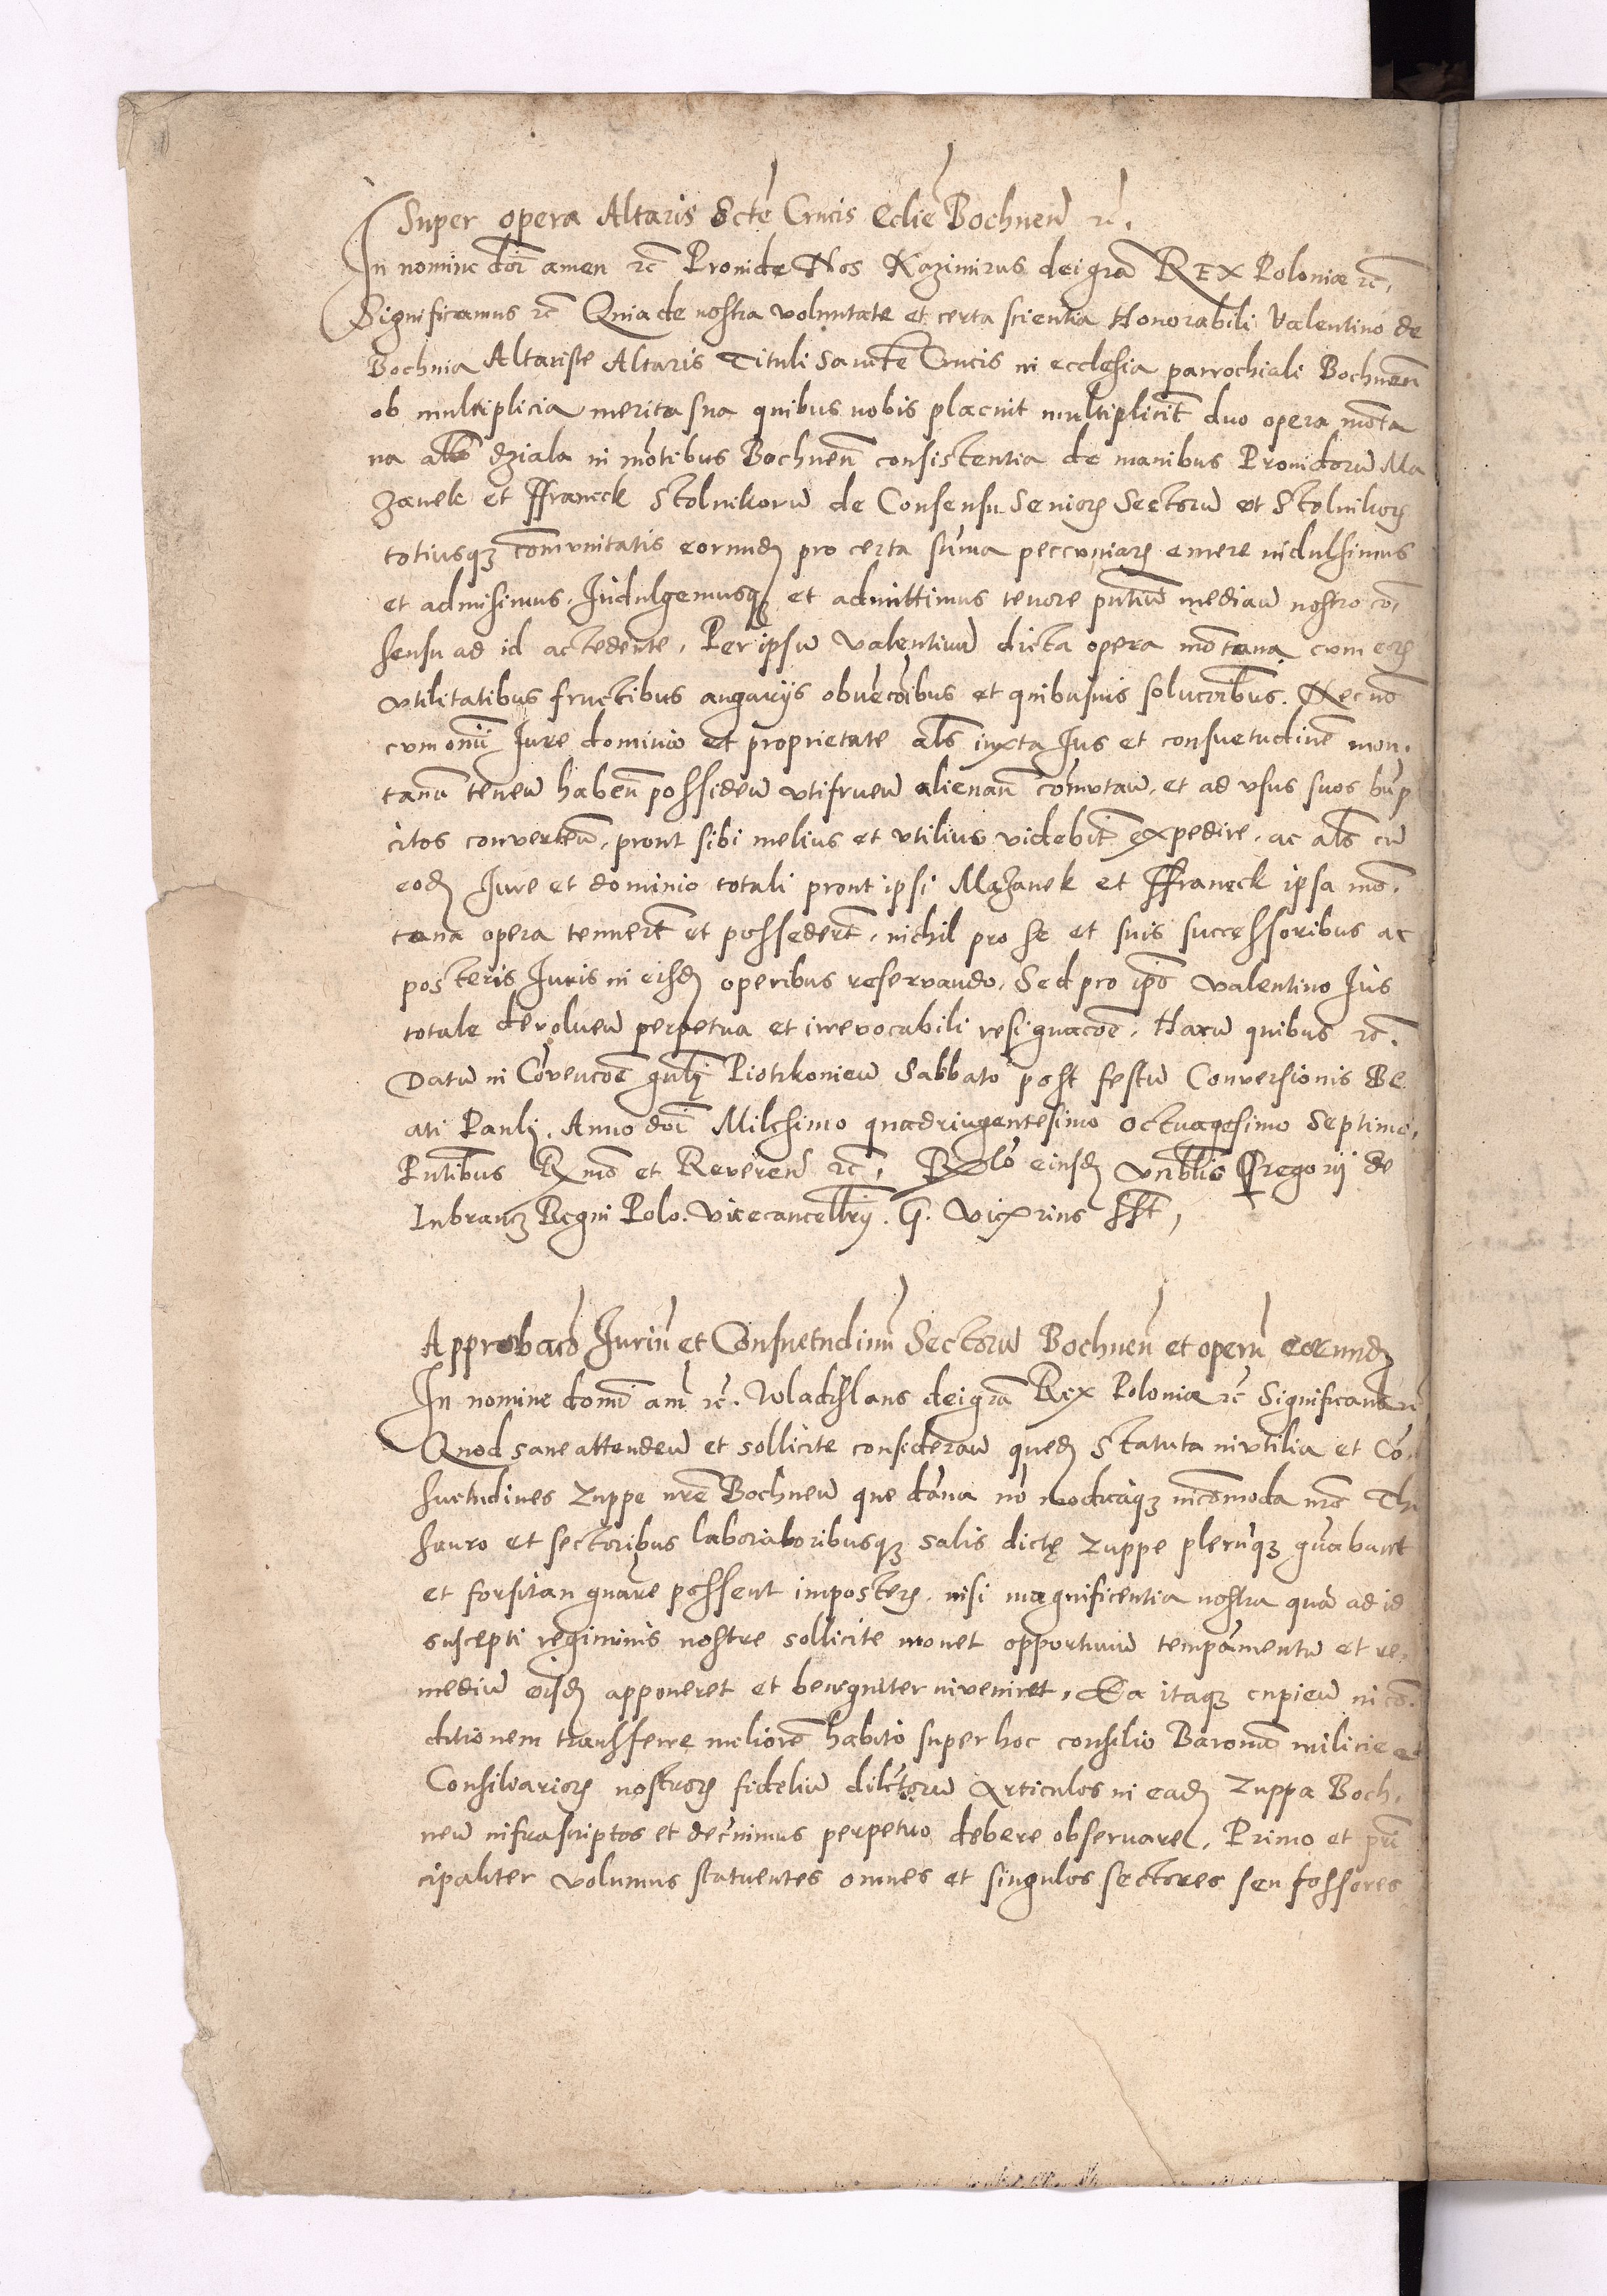 Super opera Altaris Scte Crucis Eclie Bochnen̄ rc.
In nomine dōi amen rc Proinde Nos Kazimirus dei grā REX Poloniæ rc,
Significamus rc Quia de nostra voluntate et certa scientia Honorabili Valentino de
Bochnia Altariste Altaris Tituli Sancte Crucis in ecclesia parrochiali Bochnen̄
ob multiplicia merita sua quibus nobis placuit multiplicit̄ duo opera mōta
na als̄ dziala in mōtibus Bochnen̄ consistentia de manibus Prouidorū Ma
zanek et ffranck Stolnikorū de Consensu Seniorꝝ Sectorū et Stolnikorꝝ
totiusqꝫ cōmvnitatis eorundꝫ pro certa sūma peccvniarꝝ emere indulsimus
et admisimus. Indulgemusqꝫ et admittimus tenore pn̄tiū median̄ nostro cō,
sensu ad id accedente, Per ipsū Valentinū dicta opera mōtana cvm eorꝝ
vtilitatibus fructibus angarijs obuēcōibus et quibusuis solucōibus. Necnō
cvm omī Iure dominio et proprietate als̄ iuxta Ius et consvetudinē mon.
tanū tenen̄ haben̄ possiden̄ vtifruen̄ alienan̄ cōmvtan̄, et ad vsus suos būpl
citos converten̄, prout sibi melius et vtilius videbit̄ expedire, ac als̄ cū
eodꝫ Iure et dominio totali prout ipsi Mazanek et ffranck ipsa mō.
tana opera tenuert̄ et possedert̄, nichil pro se et suis successoribus ac
posteris Iuris in eisdꝫ operibus reservando, Sed pro ip̄o Valentino Ius
totale devoluen̄ perpetua et irrevocabili resignacōe, Harū quibus rc.
Datū in Cōvencōe gn̄lj Piotrkonien̄ Sabbato post festū Conversionis Be
ati Paulj, Anno dōi Milesimo quadringentesimo octuagesimo Septimo,
Pn̄tibus Rmō et Reveren̄ rc, Relō eiusdꝫ Vn̄blis Gregorij de
Lubrancz Regni Polo. Vicecancellrij. G. Vicxrius sst,
Approbacō Iuriū et Consuetudinū Sectorū Bochnen̄ et operū eorundꝫ
In nomine domī am̄ rc. Wladislaus dei grā Rex Poloniæ rc Significamus rc
Quod sane attenden̄ et sollicite consideran̄ quedꝫ Statuta invtilia et Cō.
suetudines Zuppe nr̄e Bochnen̄ que dāna nō modicaqꝫ incōmoda nr̄o The
sauro et sectoribus laboratoribusqꝫ salis dictę Zuppe plerūqꝫ gn̄abant
et forsitan gn̄are possent imposterꝝ, nisi magnificentia nostra quā ad id
suscepti regiminis nostre sollicite monet opportunū tempāmentū et re,
mediū eisdꝫ apponeret et benigniter inveniret, Ea itaqꝫ cupien̄ in cō.
ditionem transferre meliorē habito super hoc consilio Baronū milicie et
Consiliariorꝝ nostrorꝝ fideliū dilectorū Articulos in eadꝫ Zuppa Boch,
nen̄ infrascriptos et decr̄nimus perpetuo debere observare, Primo et prīn
cipaliter volumus statuentes omnes et singulos sectores seu fossores